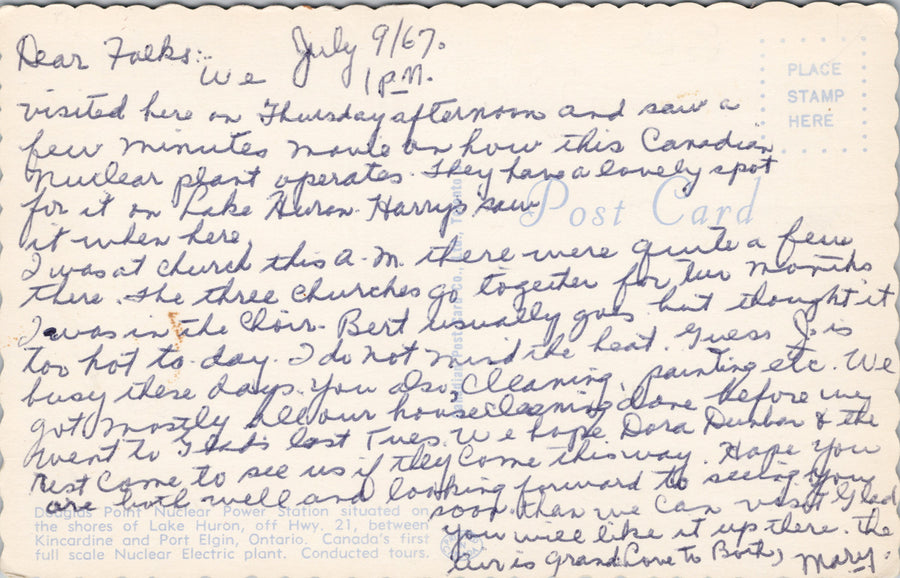 Dear Folks:- July 9/67.
We 1 P.M.
visited here on Thursday afternoon and saw a
few minutes movie on how this Canadian
Nuclear plant operates. They have a lovely spot
for it on Lake Huron. Harrys saw
it when here.
I was at church this A.M. there were quite a few
there. The three churches go together for two months
I was in the Choir. Bert usually goes but thought it
too hot to-day. I do not mind the heat. Guess J. is
busy these days. You also cleaning, painting etc. We
got mostly all our housecleaning done before we
went to Glad's last Tues. We hope Dora Dunbar & the
rest come to see us if they come this way. Hope you
are both well and looking forward to seeing you
soon than we can visit Glad
you will like it up there. The
air is grand Love to Both, Mary.
PLACE
STAMP
HERE
Post Card
Douglas Point Nuclear Power Station situated on
the shores of Lake Huron, off Hwy. 21, between
Kincardine and Port Elgin, Ontario. Canada's first
full scale Nuclear Electric plant. Conducted tours.